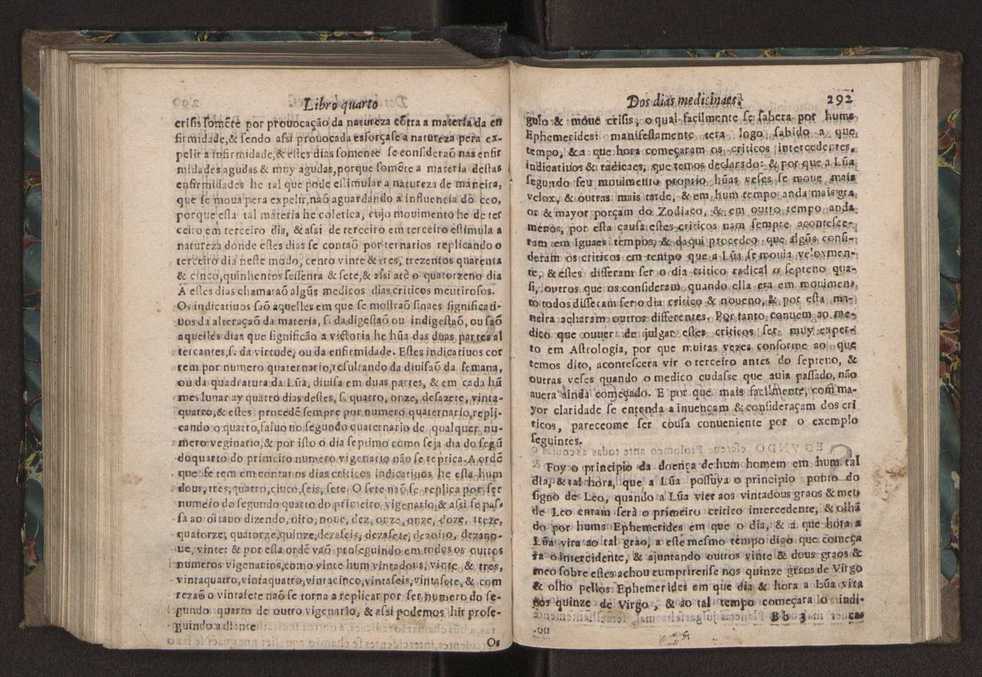 Libro quarto
crisis somẽte por prouocação da natureza cõtra a materia da en
firmidade,& sendo assi prouocada esforçase a natureza pera ex-
pelir a infirmidade,& estes dias somente se consideraõ nas enfir
midades agudas & muy agudas,porque somẽte a materia destas
enfirmidades he tal que pode estimular a natureza de maneira,
que se moua pera expelir,não aguardando a influencia do ceo,
porque esta tal materia he coletica, cujo mouimento he de ter
ceiro em terceiro dia, & assi de terceiro em terceiro estimula a
natureza donde estes dias se contaõ por ternarios replicando o
terceiro dia neste modo, cento vinte & tres, trezentos quarenta
& cinco,quinhentos sessenta & sete,& assi atè o quatorzeno dia
A estes dias chamaraõ algũs medicos dias criticos mentirosos.
Os indicatiuos saõ aquelles em que se mostraõ sinaes significati-
uos da alteraçaõ da materia, s. da digestaõ ou indigestaõ, ou saõ
aquelles dias que significão a victoria de hũa das duas partes al
tercantes,s. da virtude, ou da enfirmidade. Estes indicatiuos cor
rem por numero quaternario,resultando da diuisaõ da semana,
ou da quadratura da Lũa, diuisa em duas partes, & em cada hũ
mes lunar ay quatro dias destes, s. quatro, onze, desazete, vinta-
quatro,& estes procedẽ sempre por numero quaternario,repli-
cando o quarto,saluo no segundo quaternario de qualquer nu-
mero veginario,& por isso o dia septimo como seja dia do segũ
do quarto do primeiro numero vigenario não se reprica. A ordẽ
que se tem em contar os dias criticos indicatiuos he esta hum
dous, tres, quatro, cinco, seis, sete. O sete naõ se replica por ser
numero do segundo quarto do primeiro vigenario,& assi se pas-
sa ao oitauo dizendo, oito, noue, dez, onze, onze, doze, treze,
quatorze, quatorze,quinze,dezaseis, dezasete, dezoito, dezano-
ue, vinte: & por esta ordẽ vaõ proseguindo em todos os outros
numeros vigenarios,como vinte hum vintadous, vinte, & tres,
vintaquatro,vintaquatro,vintacinco,vintaseis,vintasete, & com
rezaõ o vintasete naõ se torna a replicar por ser numero do se-
gundo quarto de outro vigenario, & assi podemos hir prose-
guindo adiante
Os
Dos dias medicinaes. 292
gulo & moue crisis, o qual facilmente se sabera por huma
Ephemerides: manifestamente sera logo sabido a que
tempo, & a que hora começaram os criticos intercedentes,
indicatiuos & radicaes, que temos declarado: & por que a Lũa
segundo seu mouimento proprio hũas veses se moue mais
velox, & outras mais tarde, & em hum tempo anda mais gra
os & mayor porçam do Zodiaco, & em outro tempo anda
menos, por esta causa estes criticos nam sempre acontesce-
ram em iguaes tempos, & daqui procedeo que algũs consi-
deram os criticos em tempo que a Lũa se mouia veloxmen-
te, & estes disseram ser o dia critico radical o septeno qua-
si, outros que os consideram quando ella era em mouimen-
to todos disseram ser o dia critico & noueno, & por esta ma-
neira acharam outros differentes. Portanto conuem ao me-
dico que ouuer de julgar estes criticos ser muy exper-
to em Astrologia, por que muitas vezes conforme ao que
temos dito, acontescera vir o terceiro antes do septeno, &
outras veses quando o medico cudasse que auia passado, não
auera ainda começado. E por que mais facilmente, com ma-
yor claridade se entenda a inuençam & consideraçam dos cri
ticos, pareceome ser cousa conueniente por o exemplo
seguintes.
Foy o principio da doença de hum homem em hum tal
dia, & tal hora, que a Lũa possuya o principio ponto do
signo de Leo, quando a Lũa vier aos vintadous graos & meo
de Leo entam será o primeiro critico intercedente, & olhã
do por huma Ephemerides em que o dia, & a que hora a
Lũa vira ao tal grao, a este mesmo tempo digo que começa
ra o intercidente, & ajuntando outros vinte & dous graos &
meo sobre estes achou cumprirense nos quinze graos de Virgo
& olho pellos Ephemerides em que dia & hora a Lũa vira
aos quinze de Virgo, & ao tal tempo começara lo indi-
Bb 3 ca-